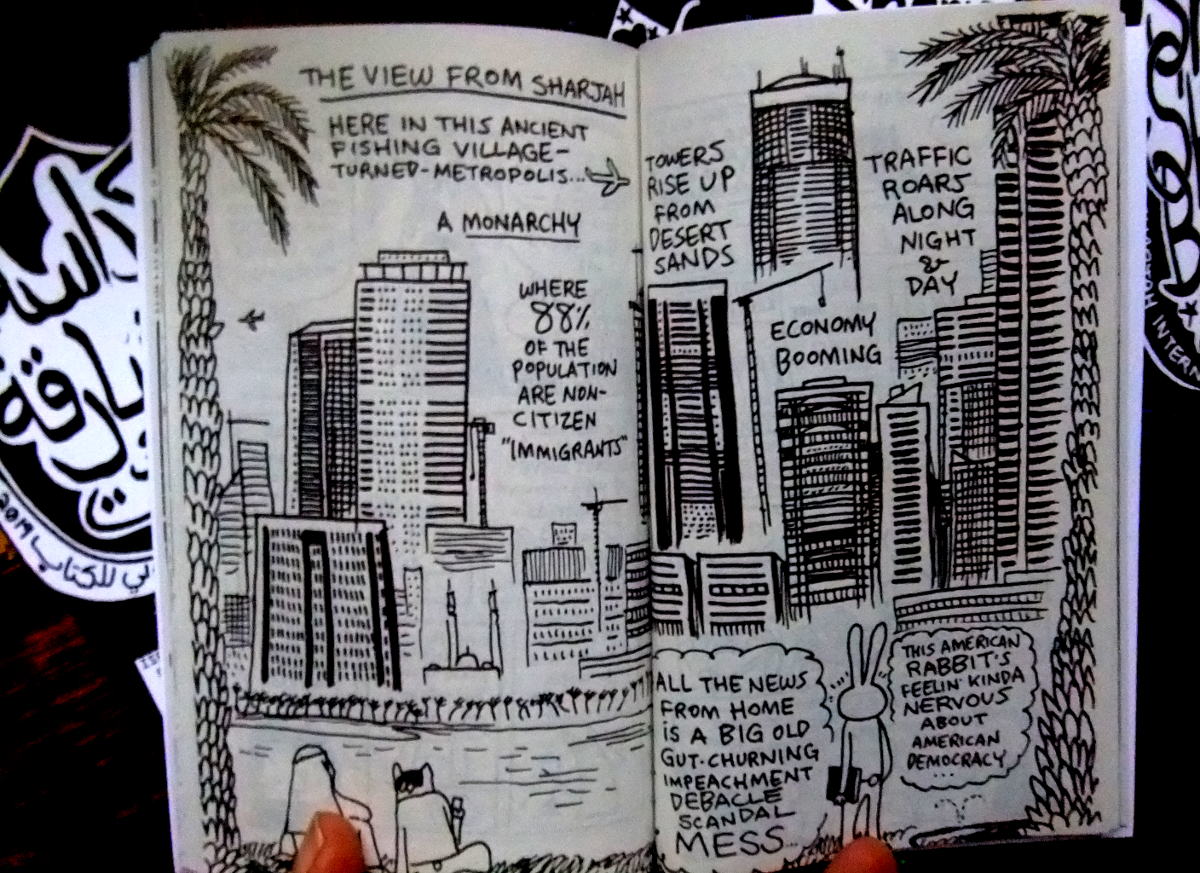 THE VIEW FROM SHARJAH
HERE IN THIS ANCIENT
FISHING VILLAGE-
TURNED-METROPOLIS...
A MONARCHY
WHERE
88%
OF THE
POPULATION
ARE NON-
CITIZEN
"IMMIGRANTS"
TOWERS
RISE UP
FROM
DESERT
SANDS
TRAFFIC
ROARS
ALONG
NIGHT
&
DAY
ECONOMY
BOOMING
ALL THE NEWS
FROM HOME
IS A BIG OLD
GUT-CHURNING
IMPEACHMENT
DEBACLE
SCANDAL
MESS...
THIS AMERICAN
RABBIT'S
FEELIN' KINDA
NERVOUS
ABOUT
AMERICAN
DEMOCRACY
...
2019
للكتاب
INTERN